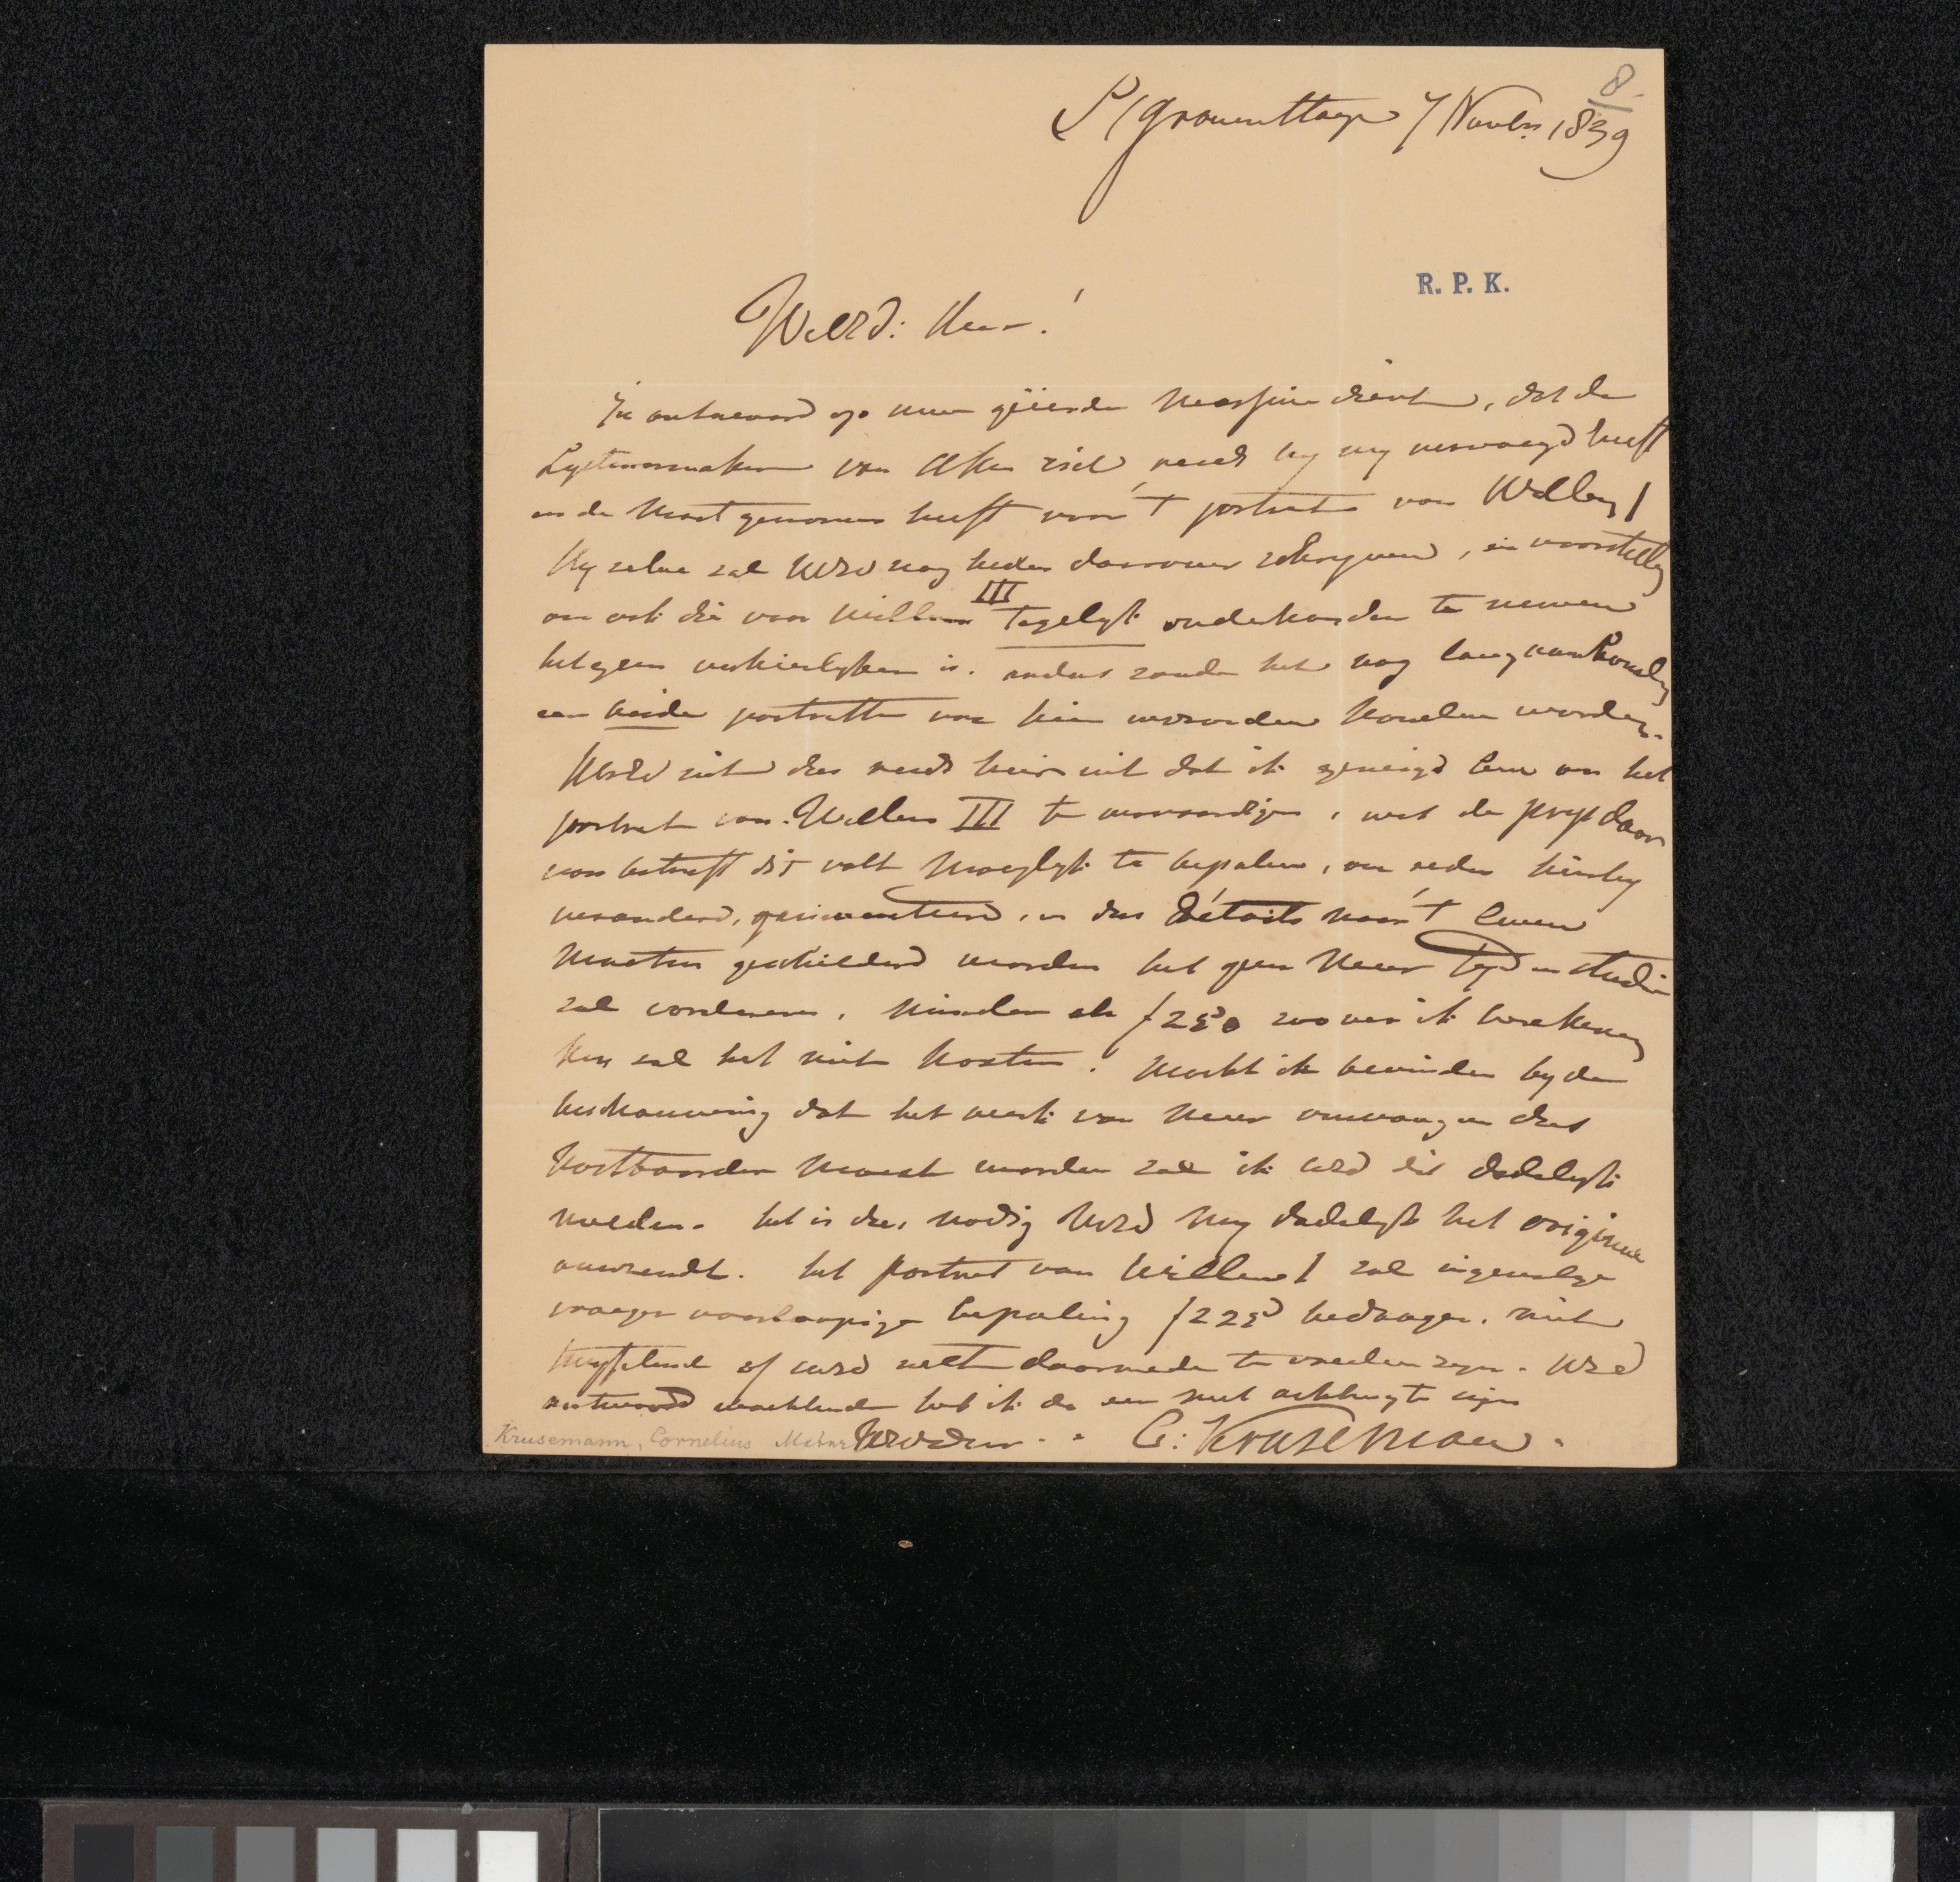 8
S/gravenHage 7 Novbr. 1839
R. P. K.
WelEd: Heer!
In antwoord op uwe geëerde dient, dat de
Lystenmaker van Aken zich reeds by my vervoegd heeft
en de Maat genomen heeft voor 't portret van Willem I
Hy zelve zal UEd nog heden daarover schryven, en voorstellen
om ook die van Willem III tegelyk onderhanden te nemen
hetgeen verkieslyker is. anders zoude het nog lang aanhouden
eer beide portretten van hier verzonden konden worden.
UEd ziet dus reeds hier uit dat ik geneigd ben om het
portret van Willem III te vervaardigen, wat de prys daar
van betreft dit valt Moeylyk te bepalen, om reden hierby
veranderd, geinventeerd, en dus détails naar 't leven
Moeten geschilderd worden het geen Meer Tyd en studie
zal vorderen. Minder als f250 zoover ik berekenen
kan zal het niet kosten. Mocht ik bevinden by de
beschouwing dat het werk van Meer omvang en dus
Kostbaarder Moest worden zal ik UEd dit dadelyk
melden. het is dus nodig UEd My dadelyk het origineel
overzendt. het portret van Willem I zal ingevolge
vroeger voorloopige bepaling f225 bedragen. niet
twyfelende of UEd zult daarmede te vreden zyn. UEd
antwoord wachtende heb ik de eer met achting te zyn
Krusemann, Cornelius UEdDienr. C: Kruseman.